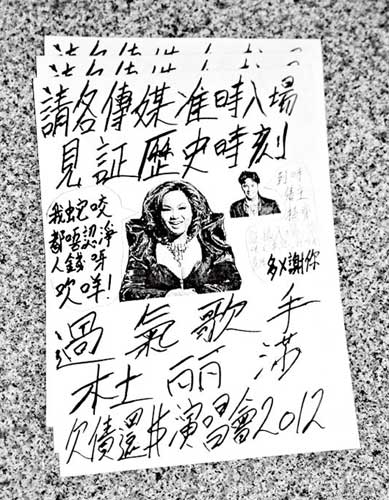 請各傳媒准時入場
見証歷史時刻
我蛇咬
都唔認淨
人錢呀
吹咩!
多X謝你
過氣歌手
杜麗莎
欠債還$演唱會2012